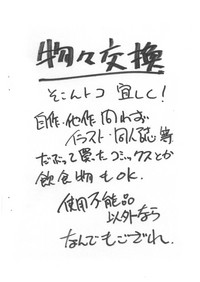 物々交換
そこんトコ 宜しく！
自作・他作 問わず
イラスト・同人誌 等
だぶって買ったコミックスとか
飲食物もOK.
使用不能品
以外なら
なんでもござれ.